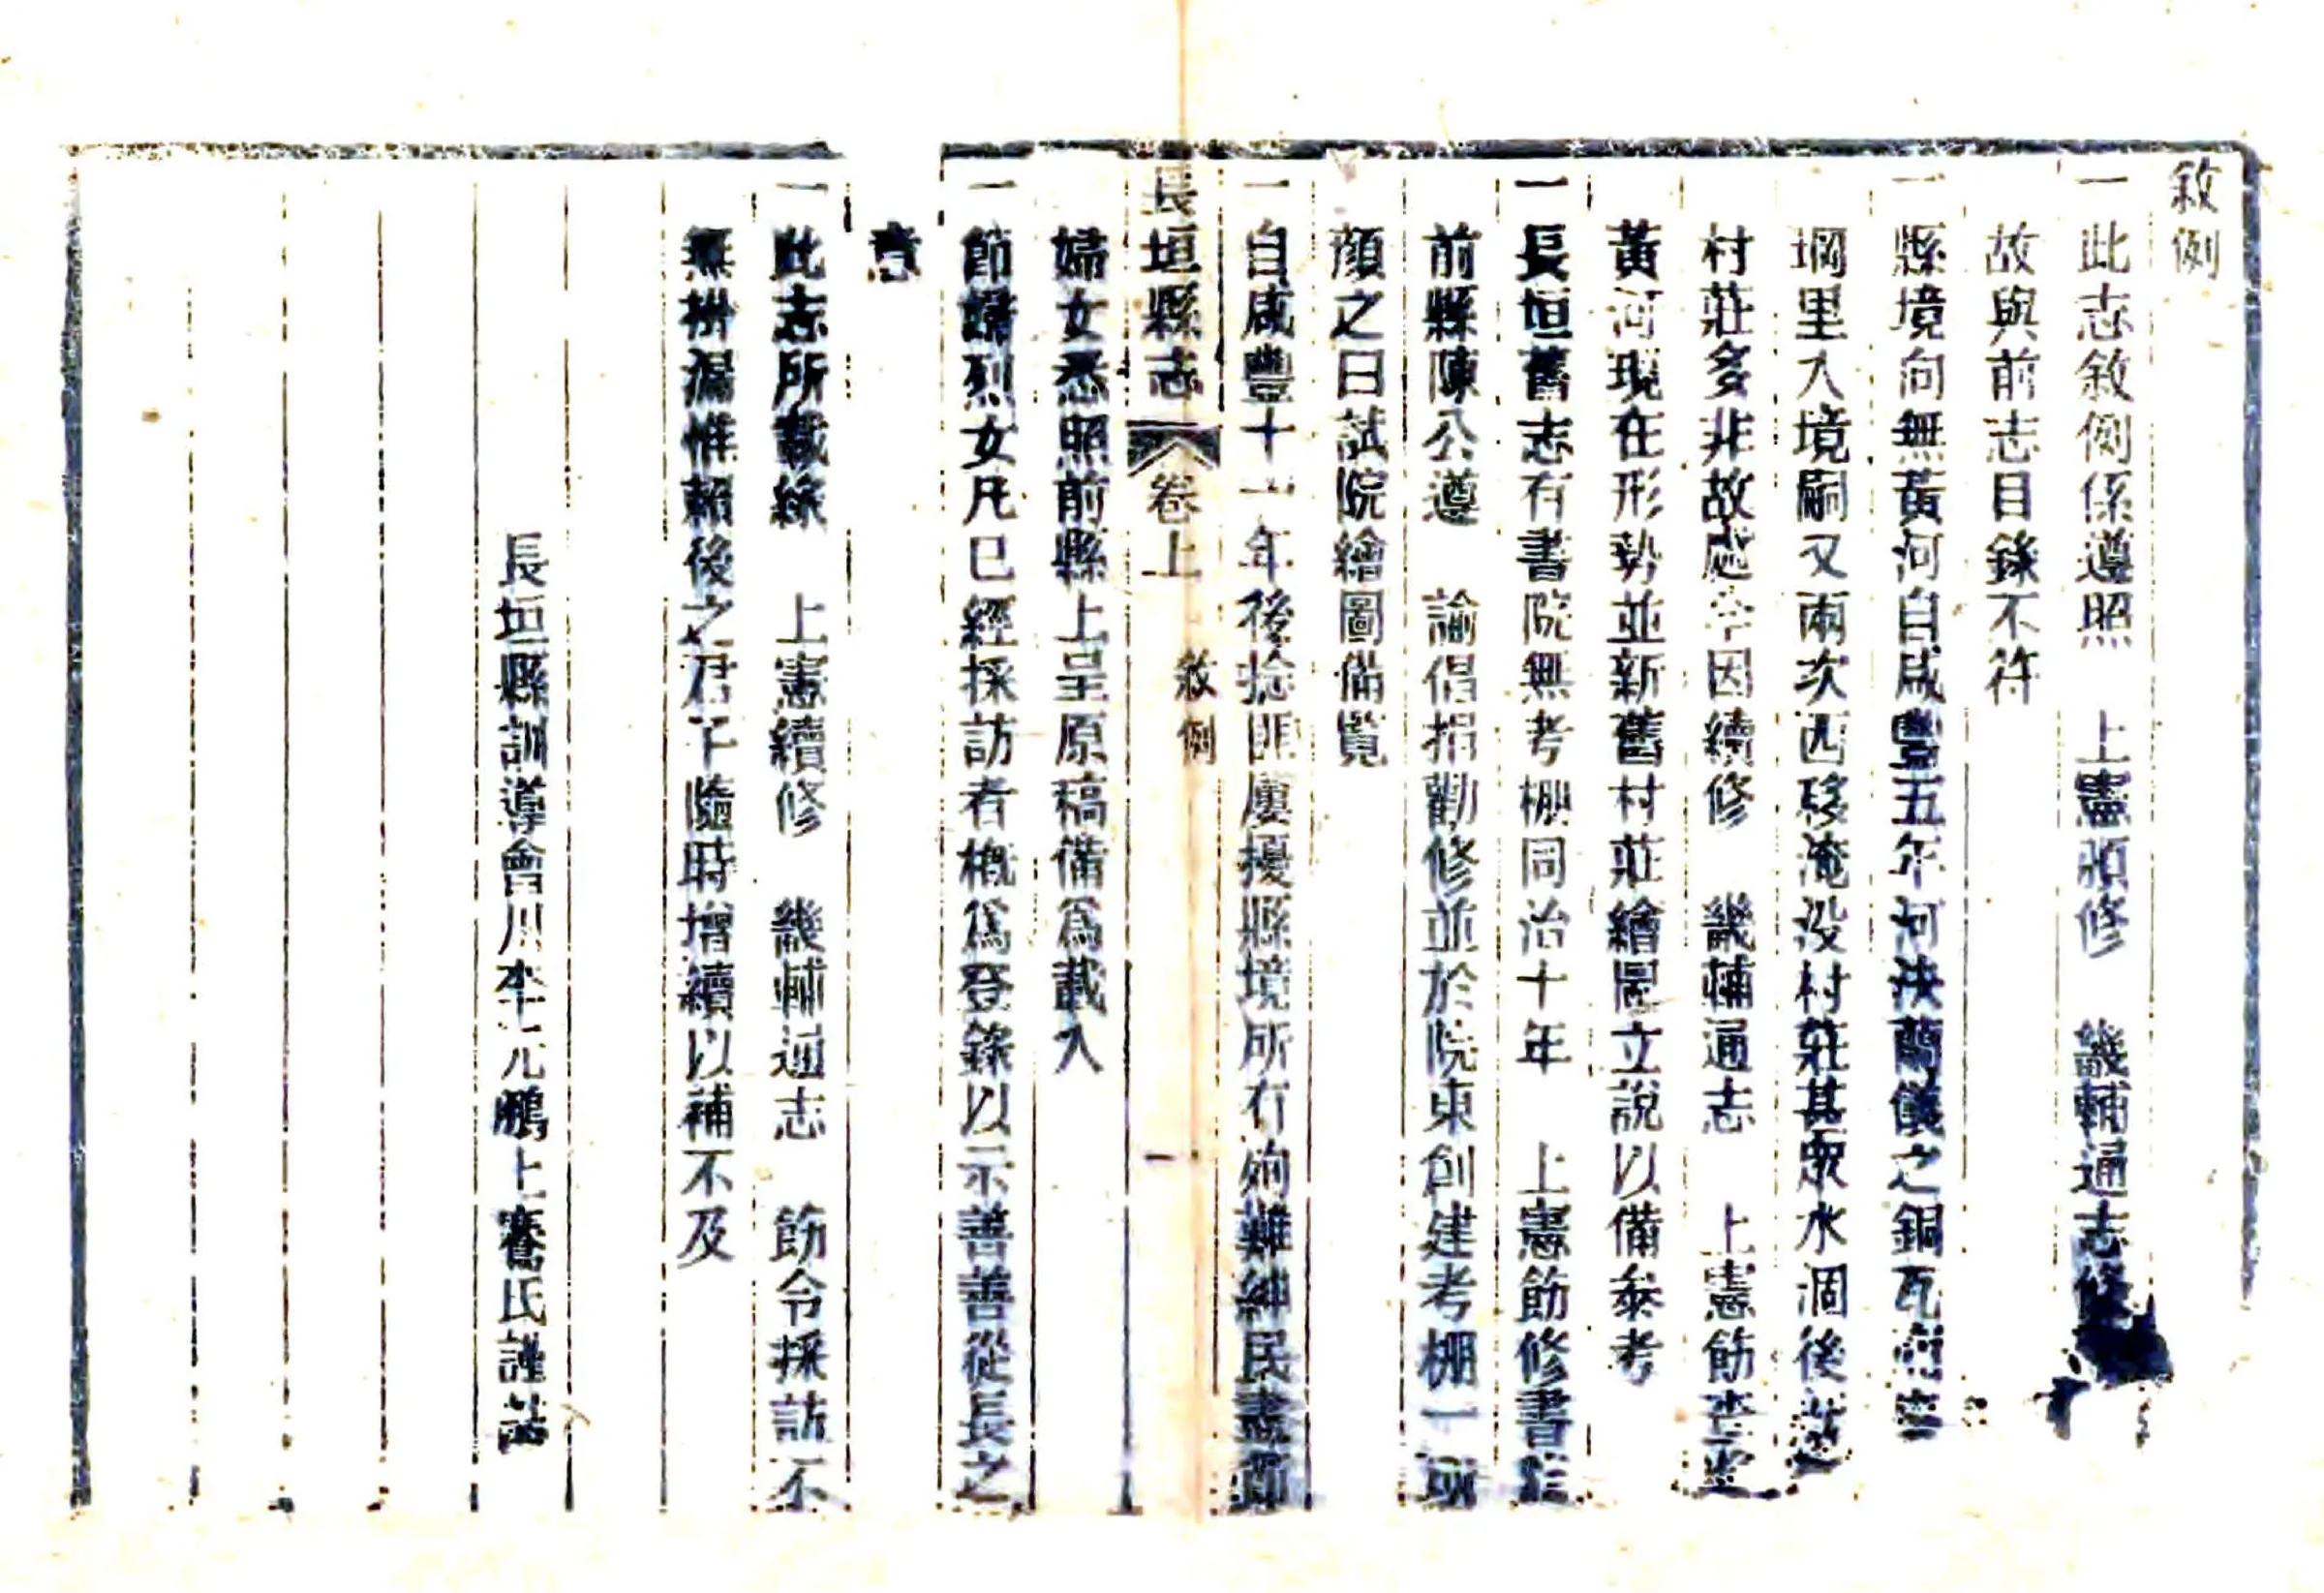 敘例
一此志敘例係遵照　上憲頒修　畿輔通志修
故與前志目錄不符
一縣境向無黃河自咸豐五年河決蘭儀之銅瓦
堈里入境嗣又兩次西移淹没村莊甚衆水涸後
村莊多非故處今因續修　畿輔通志　上憲飭查
黃河現在形勢並新舊村莊繪圖立說以備叅考
一長垣舊志有書院無考棚同治十年　上憲飭修書院
前縣陳公遵　諭倡捐勸修並於院東創建考棚一所
顔之曰試院繪圖備覧
一自咸豐十一年後捻匪屢擾縣境所有殉難紳民盡節
長垣縣志　卷上　敘例　一
婦女悉照前縣上呈原稿備爲載入
一節婦烈女凡已經採訪者概爲登錄以示善善從長之
意
一此志所載緣　上憲續修　畿輔通志　飭令採訪不
無掛漏惟賴後之君子隨時增續以補不及
長垣縣訓導會川李元鵬上騫氏謹誌